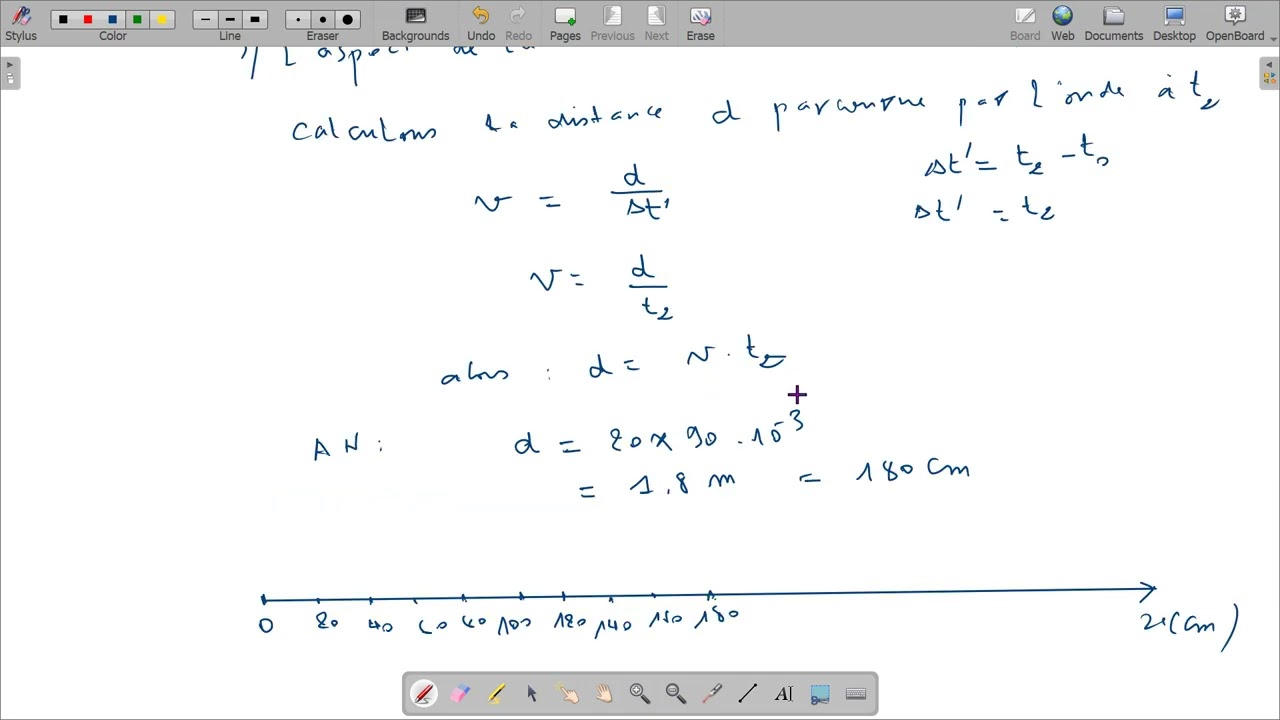 Stylus Color Line Eraser Backgrounds Undo Redo Pages Previous Next Erase Board Web Documents Desktop OpenBoard
L'aspect de la
Calculons la distance d parcourue par l'onde à t2
Δt' = t2 - t0
v = d / Δt'
Δt' = t2
v = d / t2
alors : d = v . t2
AN : d = 20 x 90 . 10^-3
= 1.8 m = 180 cm
0 20 40 60 80 100 120 140 160 180 x(cm)
AI